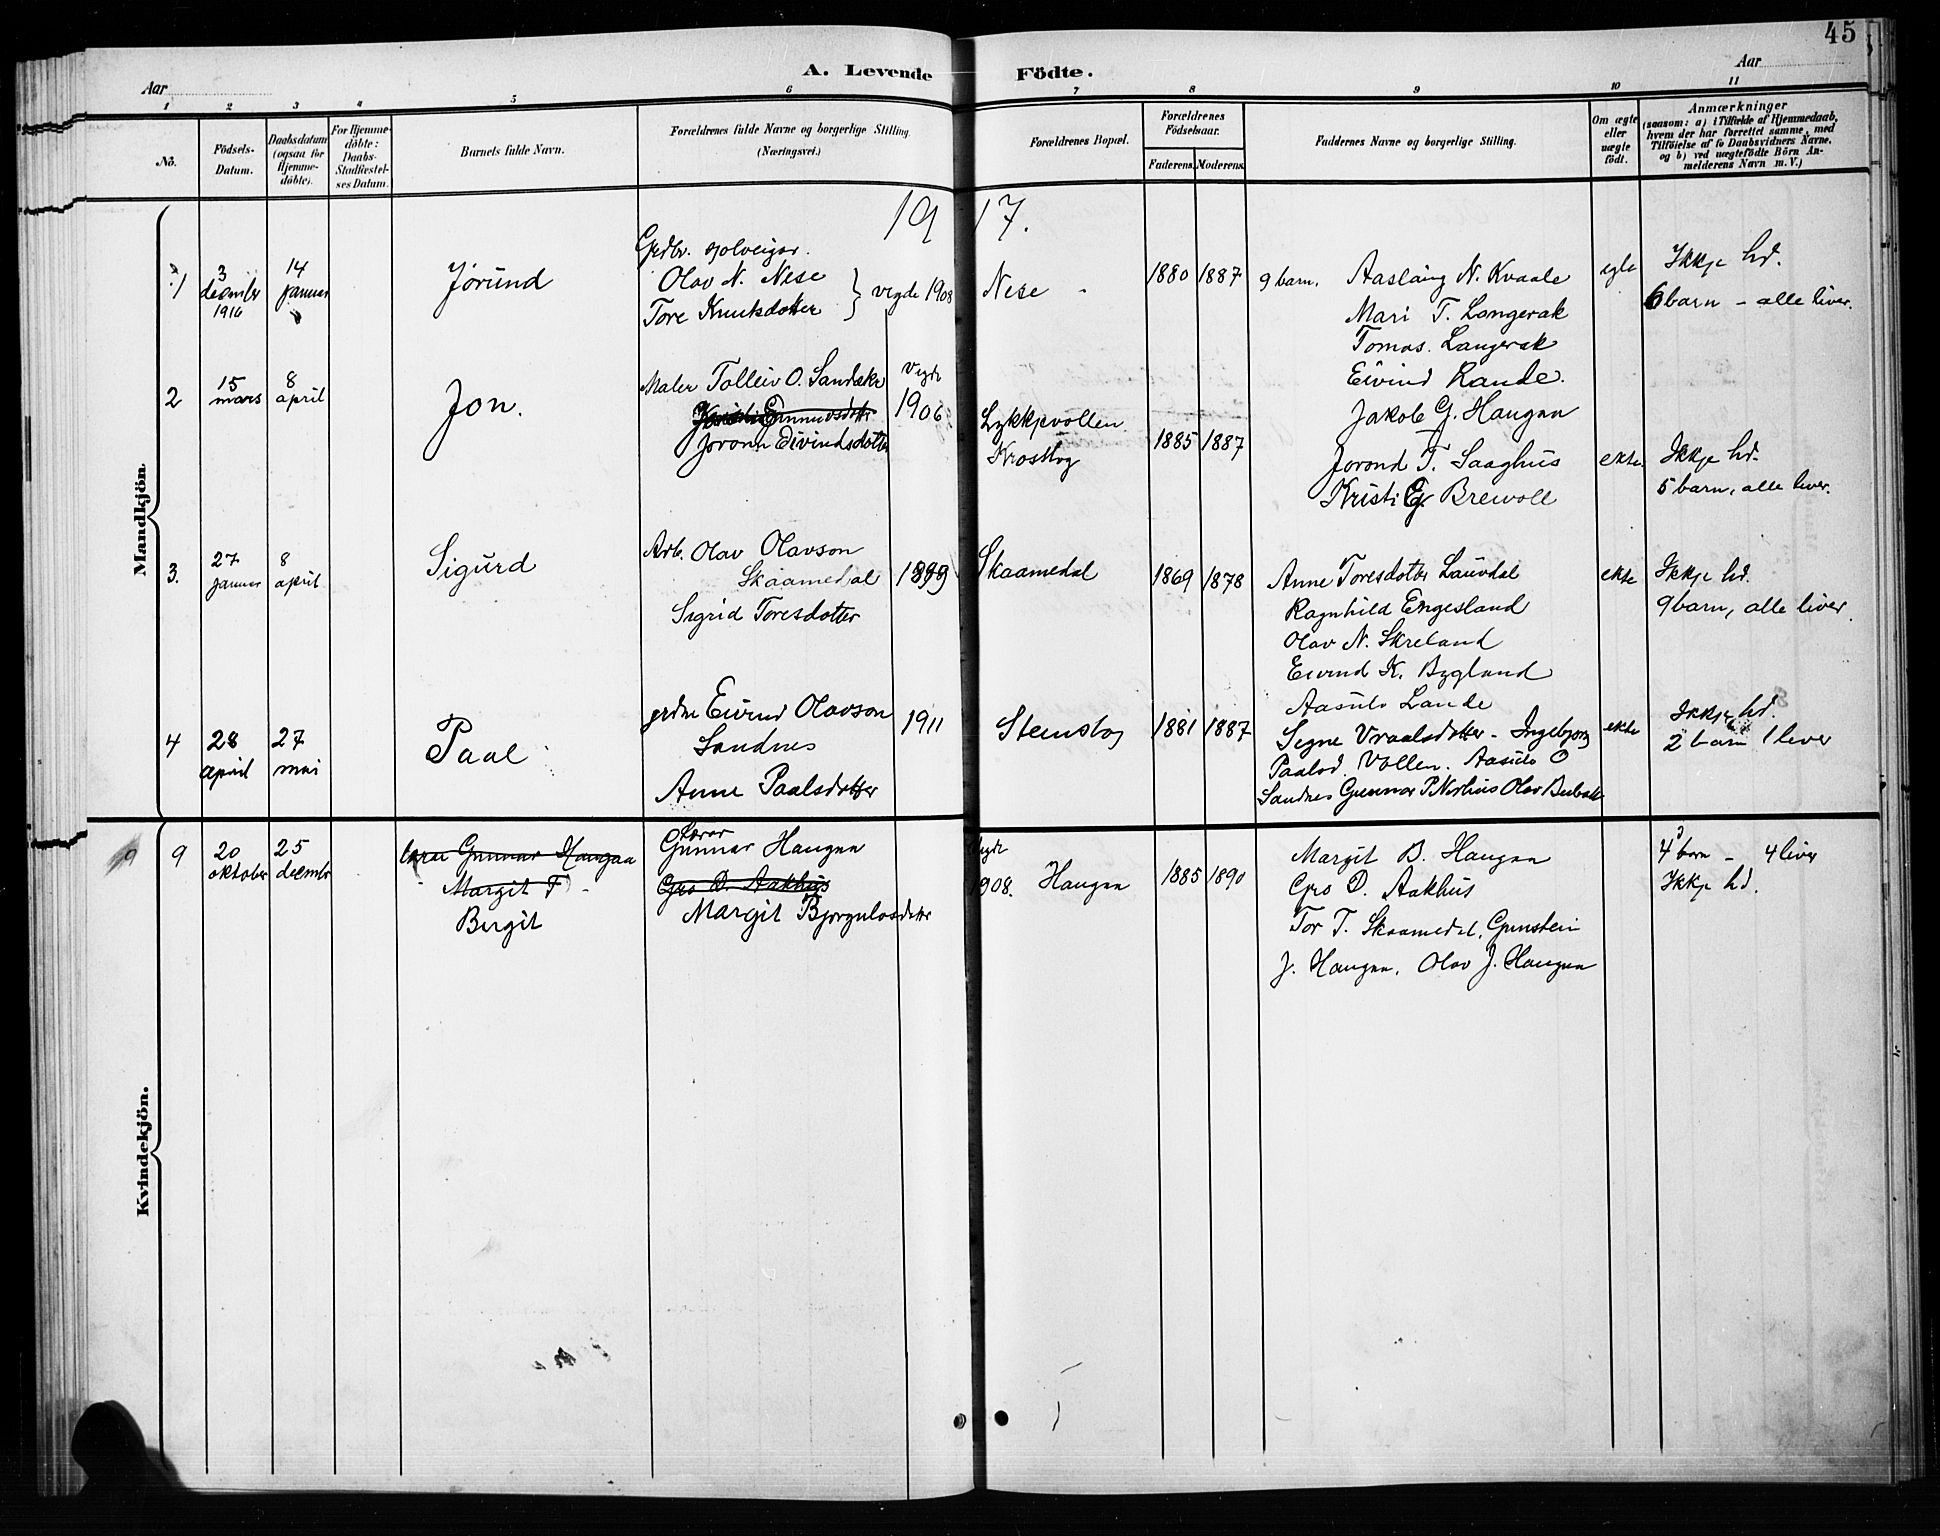 45
A. Levende Födte.
Aar
Aar
1 2 3 4 5 6 7 8 9 10 11
No.
Födsels-Datum.
Daabsdatum (ogsaa for Hjemme-döbte).
For Hjemme-döbte: Daabs-Stadfæstel-ses Datum.
Barnets fulde Navn.
Forældrenes fulde Navne og borgerlige Stilling.
(Næringsvei.)
Forældrenes Bopæl.
Forældrenes Fødselsaar.
Faderens. Moderens.
Faddernes Navne og borgerlige Stilling.
Om ægte eller uægte födt.
Anmærkninger
(saasom: a) i Tilfælde af Hjemmedaab,
hvem der har forrettet samme, med
Tilföielse af to Daabsvidners Navne,
og b) ved uægtefödte Börn An-
melderens Navn m. V.)
1917.
Mandkjön.
1
3 desember 1916
14 januar
Jörund
Grdbr. sjolveigar.
Olav N. Nese
Tore Knutsdotter
vigde 1908
Nese
1880 1887
9 barn. Aaslaug N. Kvaale
Mari T. Langerak
Tomas. Langerak
Eivind Rande.
Jakob G. Haugaa
egte
Ikkje hd.
6 barn - alle liver.
2
15 mars
8 april
Jon.
Maler Tolleiv O. Sandåker
Joronn Eivindsdotter
Vigde 1906
Lykkjevollen
Krostbg
1885 1887
Jorond T. Saaghus
Kristi G. Brevoll
ekte
Ikkje hd.
5 barn, alle liver.
3.
27 januar
8 april
Sigurd
Arb. Olav Olavson
Skaamedal
Sigrid Toresdotter
1899
Skaamedal
1869 1878
Anne Toresdotter Lauvdal
Ragnhild Engesland
Olav N. Skreland
Eivind K. Bygland
Aasulv Lande
ekte
Ikkje hd.
9 barn, alle liver.
4
28 april
27 mai
Paal
Eivind Olavson
Sandnes
Anne Paalsdotter
1911
1881 1887
Signe Vraalsdotter - Ingebjorg
Paalsd. Vollen. Aasulv O
Sandnes Gunnar P. Nerhus Olav
ekte
Ikkje hd.
2 barn 1 liver
Kvindekjön.
9
20 oktober
25 decembr
Gunnar Haugaa
Margit T
Birgit
Lærar
Gunnar Haugaa
Gro D. Aakhus
Margit Bjorgulvsdotter
Vigde
1908.
Haugaa
1885 1890
Margit B. Haugaa
Gro D. Aakhus
Tor T. Skaamedal, Gunstein
J. Haugaa, Olav J. Haugaa
4 barn - 4 liver
Ikkje hd.